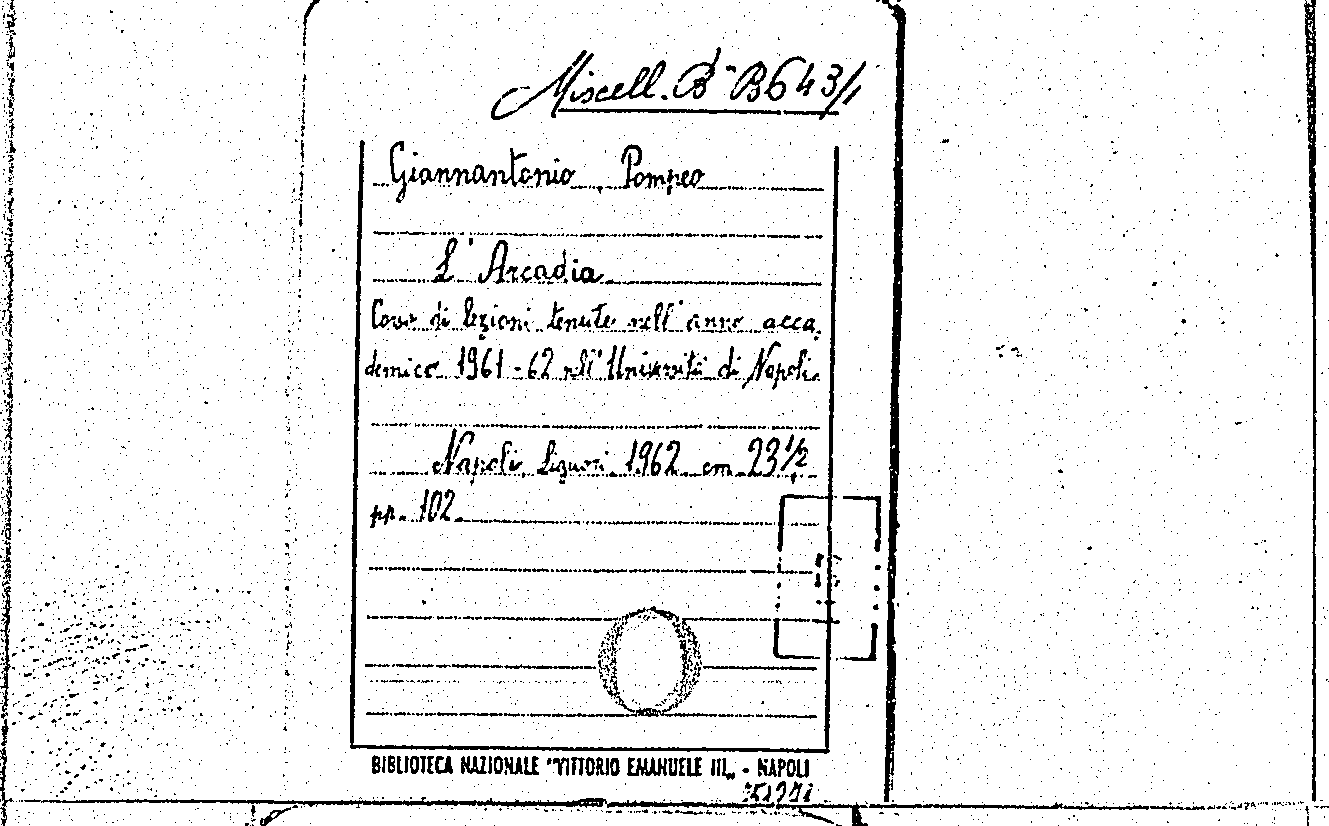 Miscell. B B643/1
Giannantonio, Pompeo
L' Arcadia
Corso di lezioni tenute nell' anno acca
demico 1961-62 nell'Università di Napoli.
Napoli, Liguori, 1962 cm 23 1/2
pp. 102.
BIBLIOTECA NAZIONALE "VITTORIO EMANUELE III„ - NAPOLI